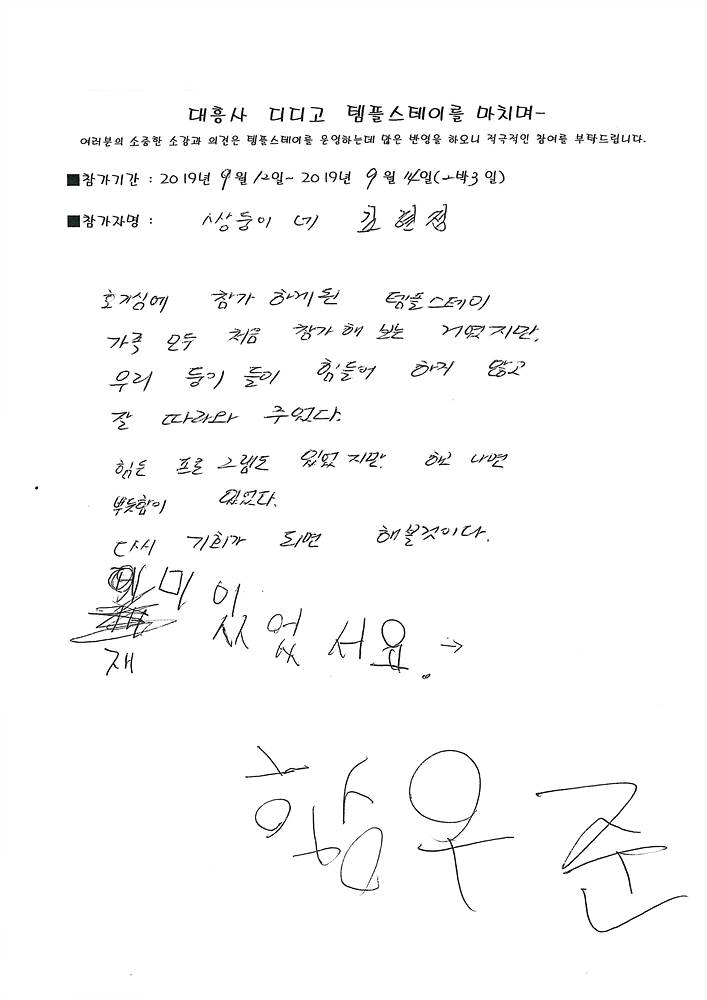 대흥사 디디고 템플스테이를 마치며-
여러분의 소중한 소감과 의견은 템플스테이를 운영하는데 많은 반영을 하오니 적극적인 참여를 부탁드립니다.
■참가기간 : 2019년 9월 12일~ 2019년 9월 14일(2박3일)
■참가자명 : 쌍둥이 네 김현정
호기심에 참가 하게된 템플스테이
가족 모두 처음 참가 해 보는 거였지만,
우리 둥이 들이 힘들어 하지 않고
잘 따라와 주었다.
힘든 프로 그램도 있었 지만, 하고 나면
뿌듯함이 있었다.
다시 기회가 되면 해볼것이다.
재미있었서요. →
함우준